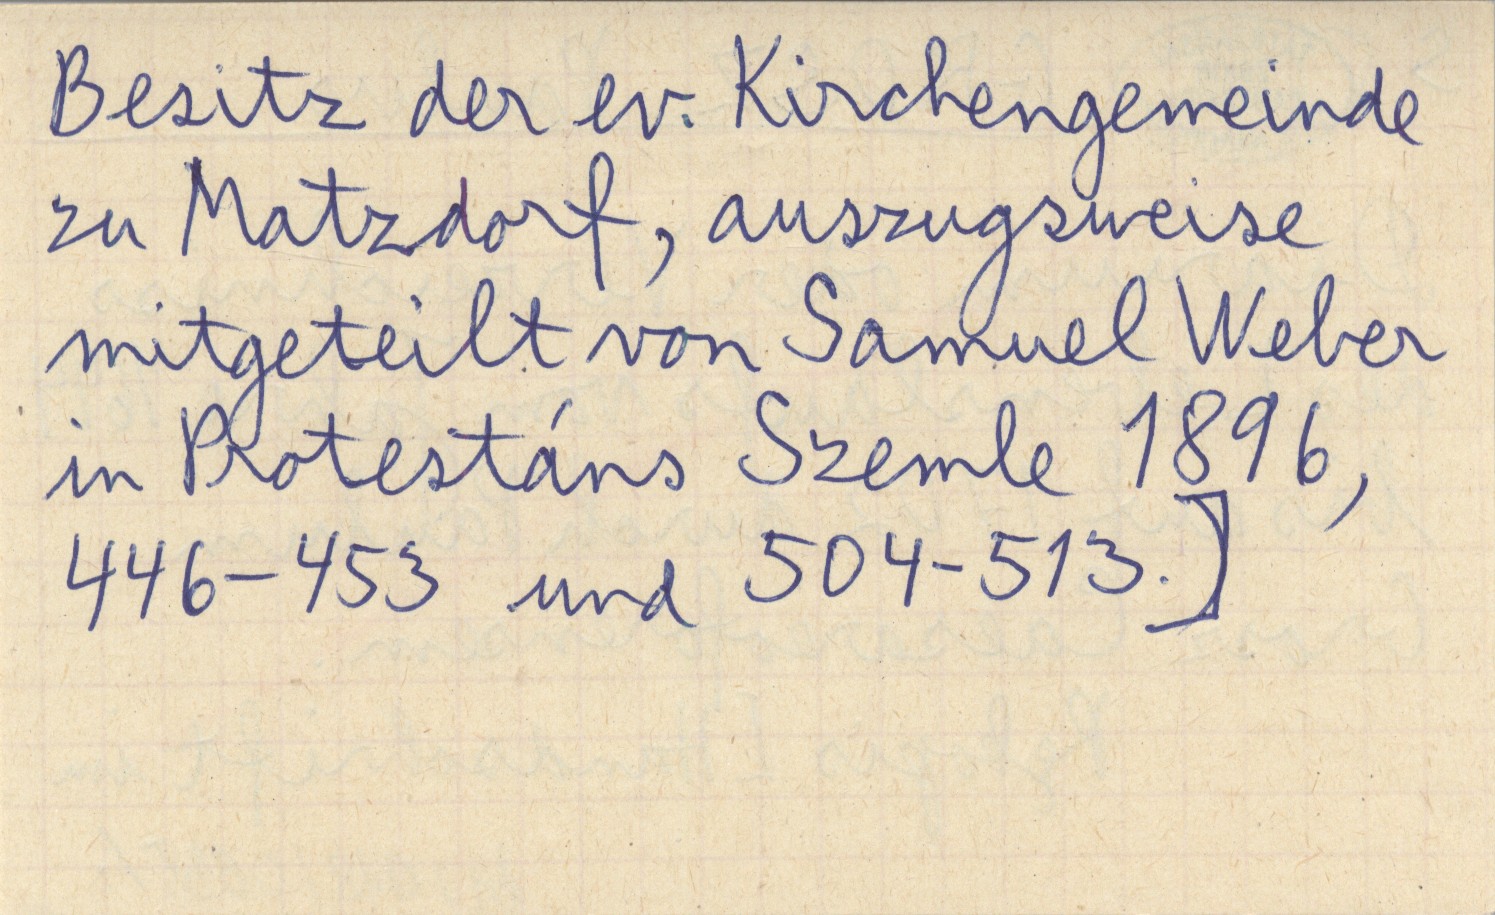 Besitz der ev. Kirchengemeinde
zu Matzdorf, auszugsweise
mitgeteilt von Samuel Weber
in Protestáns Szemle 1896,
446-453 und 504-513.]